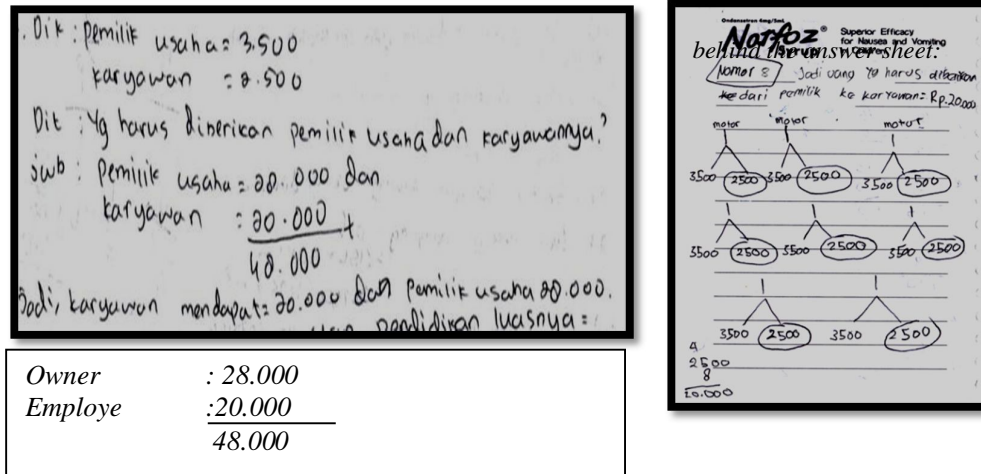 . Dik : Pemilik usaha = 3.500
karyawan = 2.500
Dit : Yg harus diberikan pemilik usaha dan karyawannya?
Jwb : Pemilik usaha = 28.000 dan
karyawan : 20.000 +
48.000
Jadi, karyawan mendapat = 20.000 dan pemilik usaha 28.000.
pendidikan luasnya =
Owner : 28.000
Employe :20.000
48.000
Ondansetron 4mg/5mL
Norfoz®
Syrup
Superior Efficacy
for Nausea and Vomiting
behind the answer sheet:
Nomor 8 Jadi uang yg harus diberikan
ke dari pemilik ke karyawan = Rp.20.000
motor motor motor
3500 2500 3500 2500 3500 2500
3500 2500 3500 2500 3500 2500
3500 2500 3500 2500
4
2500
8
20.000